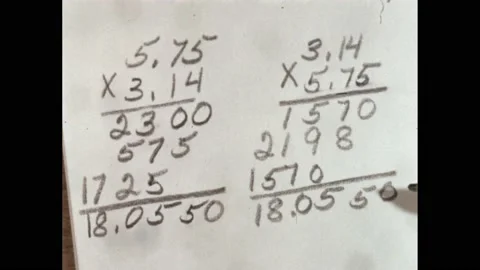 5.75
x 3.14
2300
575
1725
18.0550
3.14
x 5.75
1570
2198
1570
18.0550